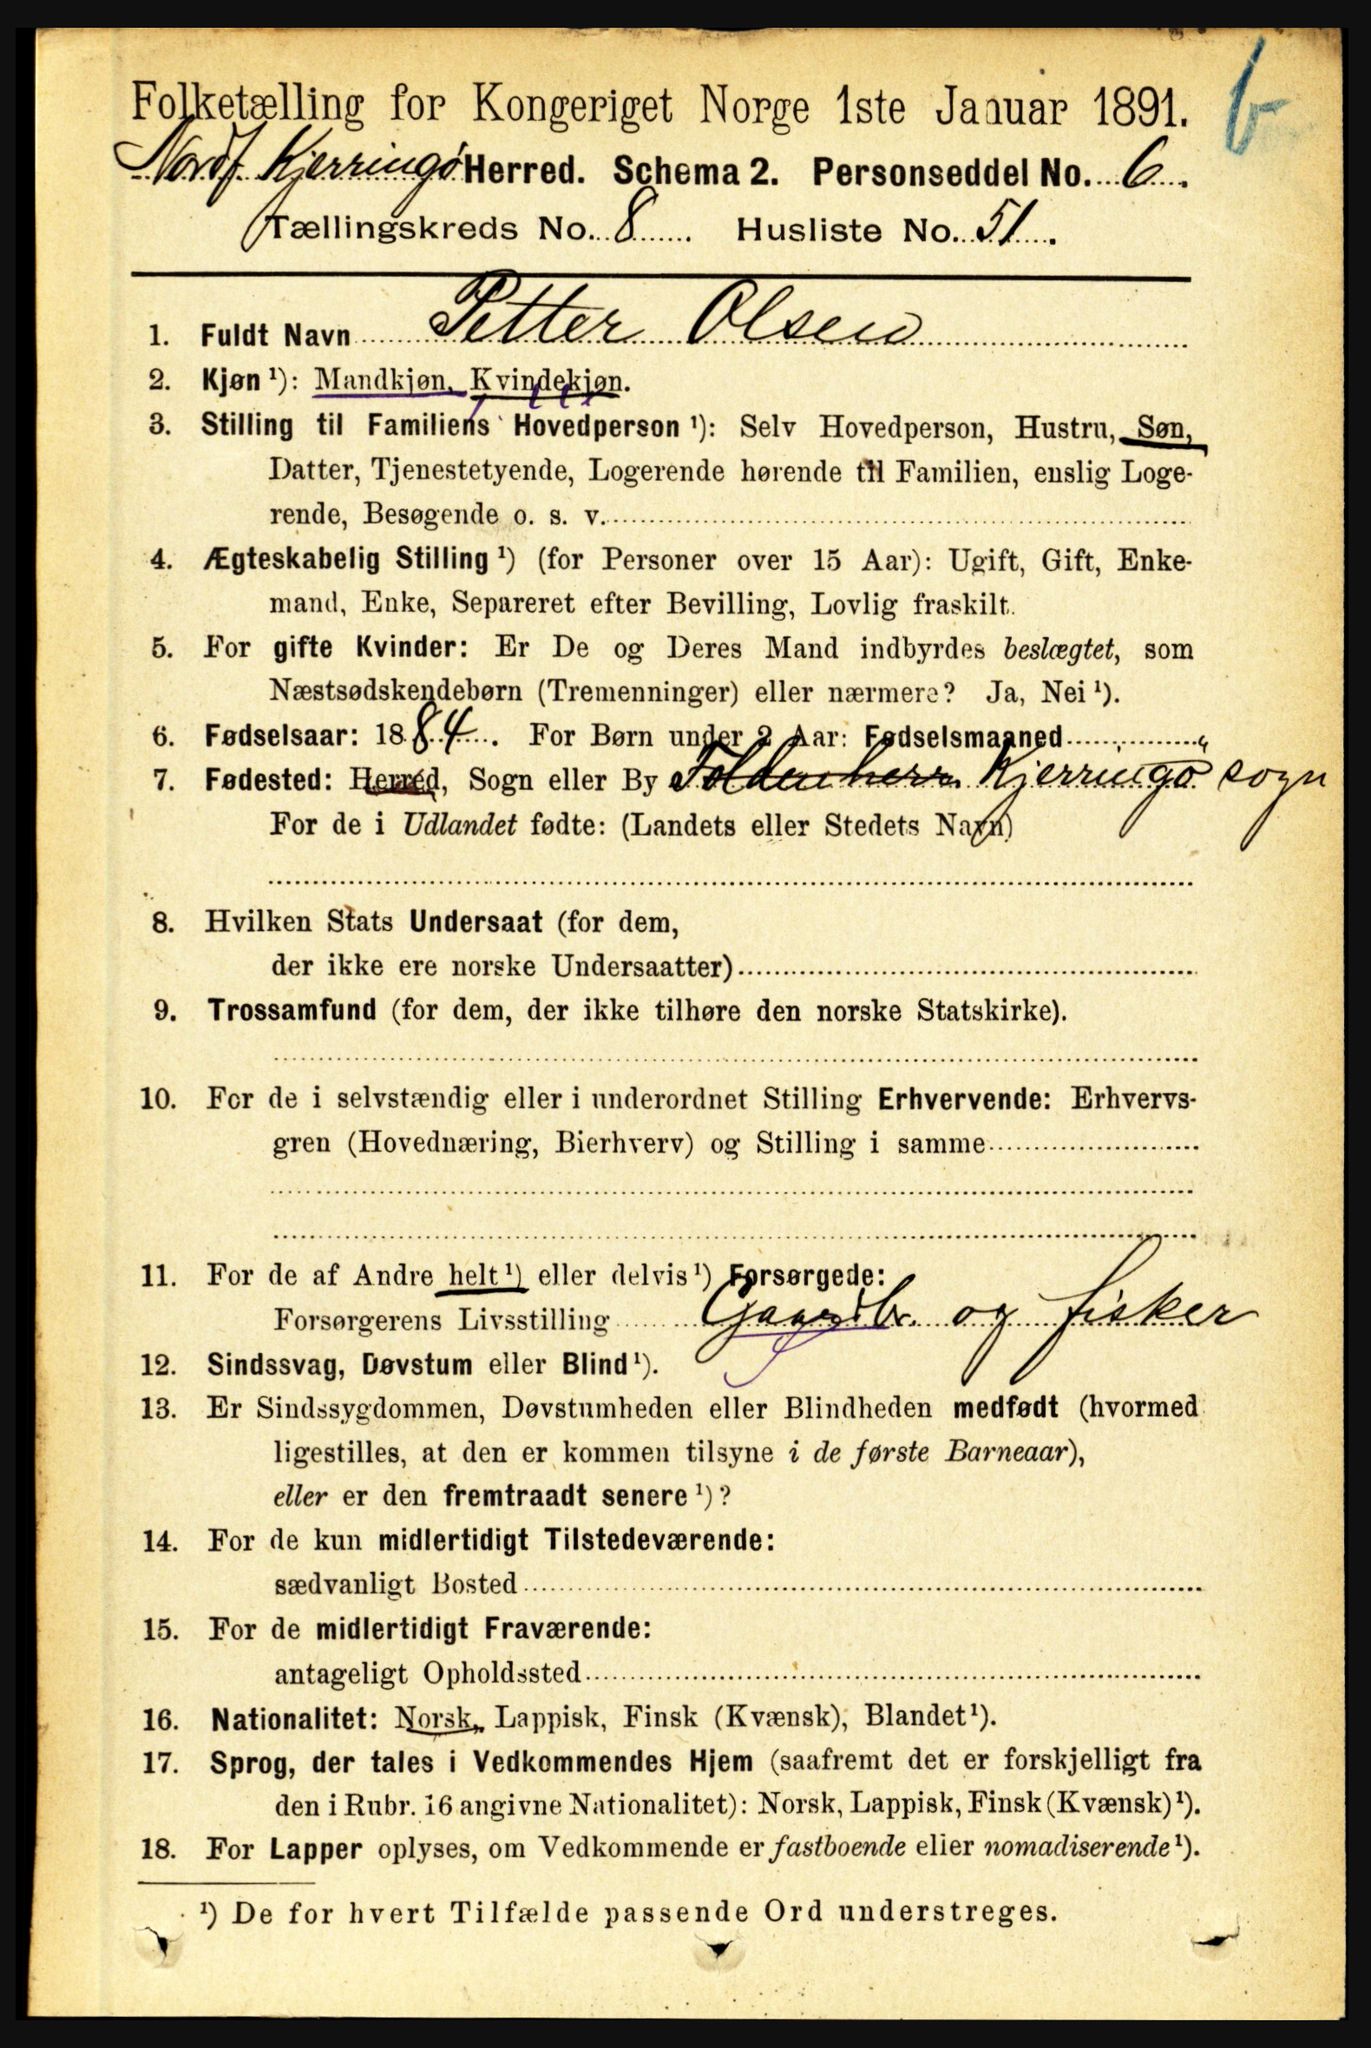 6
Folketælling for Kongeriget Norge 1ste Januar 1891.
Nordf Kjerringø Herred. Schema 2. Personseddel No. 6.
Tællingskreds No. 8 Husliste No. 51.
1. Fuldt Navn Petter Olsen
2. Kjøn ¹): Mandkjøn, Kvindekjøn.
3. Stilling til Familiens Hovedperson ¹): Selv Hovedperson, Hustru, Søn,
Datter, Tjenestetyende, Logerende hørende til Familien, enslig Loge-
rende, Besøgende o. s. v.
4. Ægteskabelig Stilling ¹) (for Personer over 15 Aar): Ugift, Gift, Enke-
mand, Enke, Separeret efter Bevilling, Lovlig fraskilt.
5. For gifte Kvinder: Er De og Deres Mand indbyrdes beslægtet, som
Næstsødskendebørn (Tremenninger) eller nærmere? Ja, Nei ¹).
6. Fødselsaar: 1884. For Børn under 2 Aar: Fødselsmaaned
7. Fødested: Herred, Sogn eller By Folden herr Kjerringø sogn
For de i Udlandet fødte: (Landets eller Stedets Navn)
8. Hvilken Stats Undersaat (for dem,
der ikke ere norske Undersaatter)
9. Trossamfund (for dem, der ikke tilhøre den norske Statskirke).
10. For de i selvstændig eller i underordnet Stilling Erhvervende: Erhvervs-
gren (Hovednæring, Bierhverv) og Stilling i samme
11. For de af Andre helt ¹) eller delvis ¹) Forsørgede:
Forsørgerens Livsstilling Gaardbr. og fisker
12. Sindssvag, Døvstum eller Blind ¹).
13. Er Sindssygdommen, Døvstumheden eller Blindheden medfødt (hvormed
ligestilles, at den er kommen tilsyne i de første Barneaar),
eller er den fremtraadt senere ¹)?
14. For de kun midlertidigt Tilstedeværende:
sædvanligt Bosted
15. For de midlertidigt Fraværende:
antageligt Opholdssted
16. Nationalitet: Norsk, Lappisk, Finsk (Kvænsk), Blandet ¹).
17. Sprog, der tales i Vedkommendes Hjem (saafremt det er forskjelligt fra
den i Rubr. 16 angivne Nationalitet): Norsk, Lappisk, Finsk (Kvænsk) ¹).
18. For Lapper oplyses, om Vedkommende er fastboende eller nomadiserende ¹).
¹) De for hvert Tilfælde passende Ord understreges.